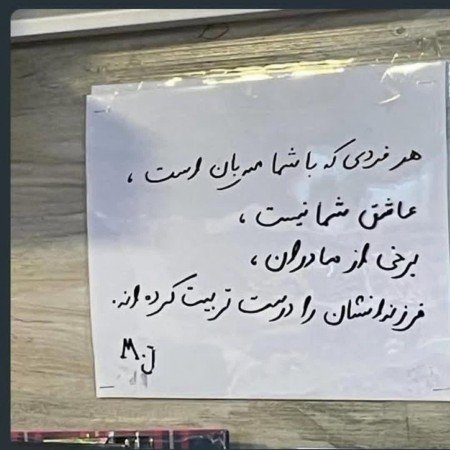 هر فردی که با شما مهربان است ،
عاشق شما نیست ،
برخی از مادران ،
فرزندانشان را درست تربیت کرده اند.
M.J